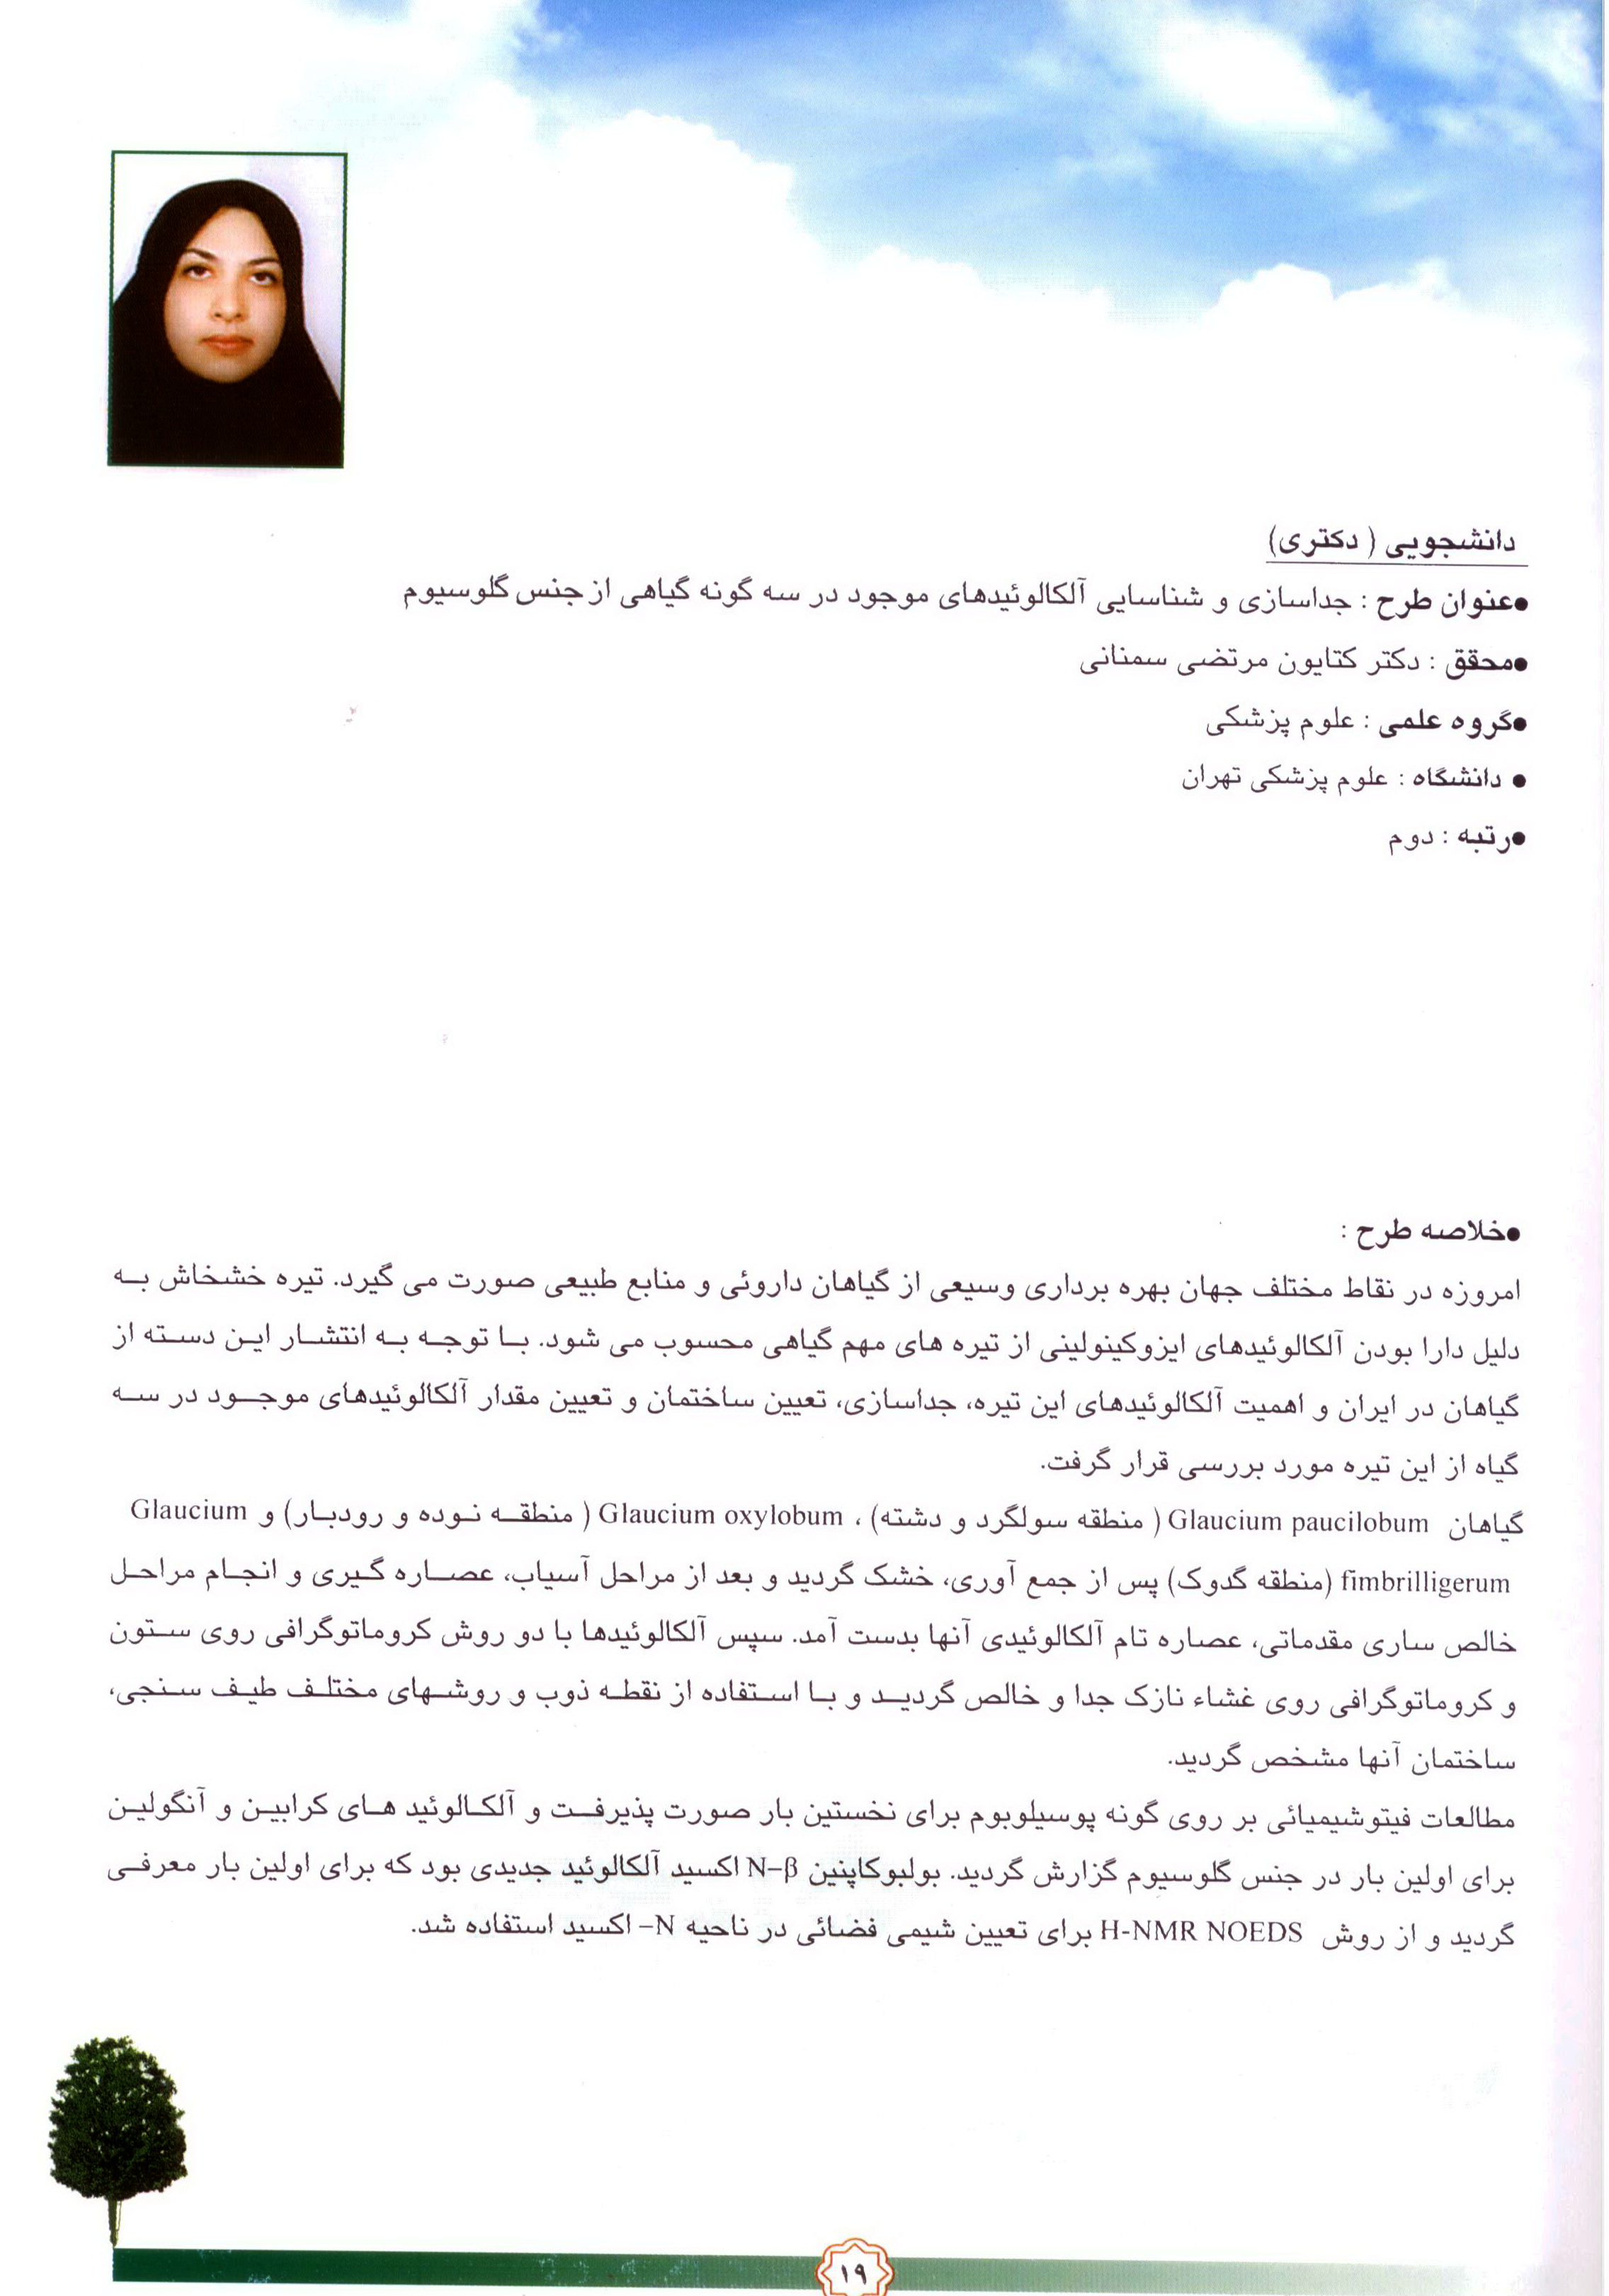 دانشجویی ( دکتری)
●عنوان طرح : جداسازی و شناسایی آلکالوئیدهای موجود در سه گونه گیاهی از جنس گلوسیوم
●محقق : دکتر کتایون مرتضی سمنانی
●گروه علمی : علوم پزشکی
● دانشگاه : علوم پزشکی تهران
●رتبه : دوم
●خلاصه طرح :
امروزه در نقاط مختلف جهان بهره برداری وسیعی از گیاهان داروئی و منابع طبیعی صورت می گیرد. تیره خشخاش به
دلیل دارا بودن آلکالوئیدهای ایزوکینولینی از تیره های مهم گیاهی محسوب می شود. با توجه به انتشار این دسته از
گیاهان در ایران و اهمیت آلکالوئیدهای این تیره، جداسازی، تعیین ساختمان و تعیین مقدار آلکالوئیدهای موجود در سه
گیاه از این تیره مورد بررسی قرار گرفت.
گیاهان Glaucium paucilobum ( منطقه سولگرد و دشته) ، Glaucium oxylobum ( منطقه نوده و رودبار) و Glaucium
fimbrilligerum (منطقه گدوک) پس از جمع آوری، خشک گردید و بعد از مراحل آسیاب، عصاره گیری و انجام مراحل
خالص ساری مقدماتی، عصاره تام آلکالوئیدی آنها بدست آمد. سپس آلکالوئیدها با دو روش کروماتوگرافی روی ستون
و کروماتوگرافی روی غشاء نازک جدا و خالص گردید و با استفاده از نقطه ذوب و روشهای مختلف طیف سنجی،
ساختمان آنها مشخص گردید.
مطالعات فیتوشیمیائی بر روی گونه پوسیلوبوم برای نخستین بار صورت پذیرفت و آلکالوئید های کرابین و آنگولین
برای اولین بار در جنس گلوسیوم گزارش گردید. بولبوکاپنین N–β اکسید آلکالوئید جدیدی بود که برای اولین بار معرفی
گردید و از روش H-NMR NOEDS برای تعیین شیمی فضائی در ناحیه N– اکسید استفاده شد.
۱۹